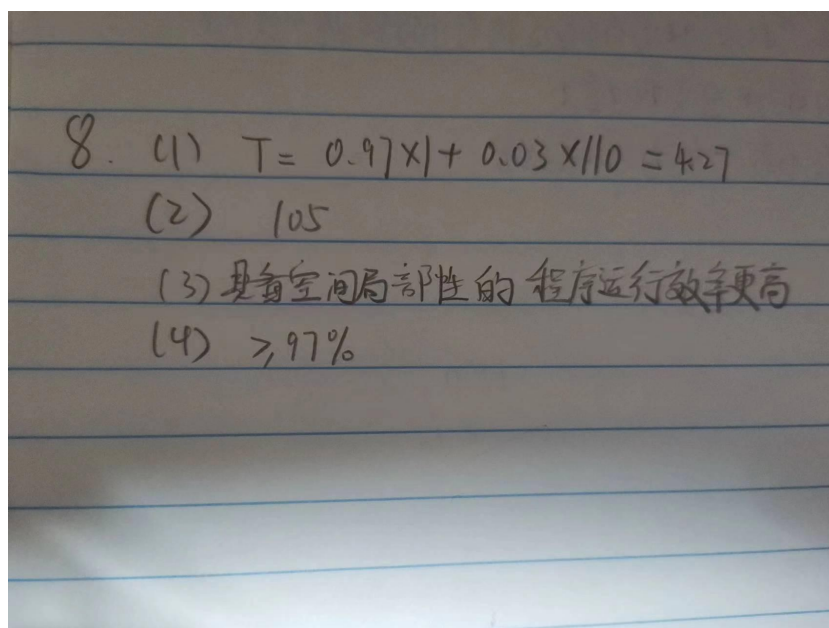 8. (1) T = 0.97×1 + 0.03×110 = 4.27
(2) 105
(3) 具备空间局部性的程序运行效率更高
(4) ≥97%